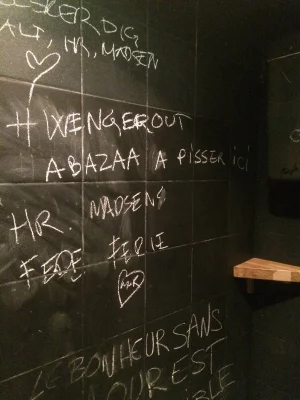 ELSKER DIG
ALT, HR. MADSEN
# WENGEROUT
ABAZAA A PISSER ICI
HR. MADSENS
FEDE FERIE
LE BONHEUR SANS
AMOUR EST